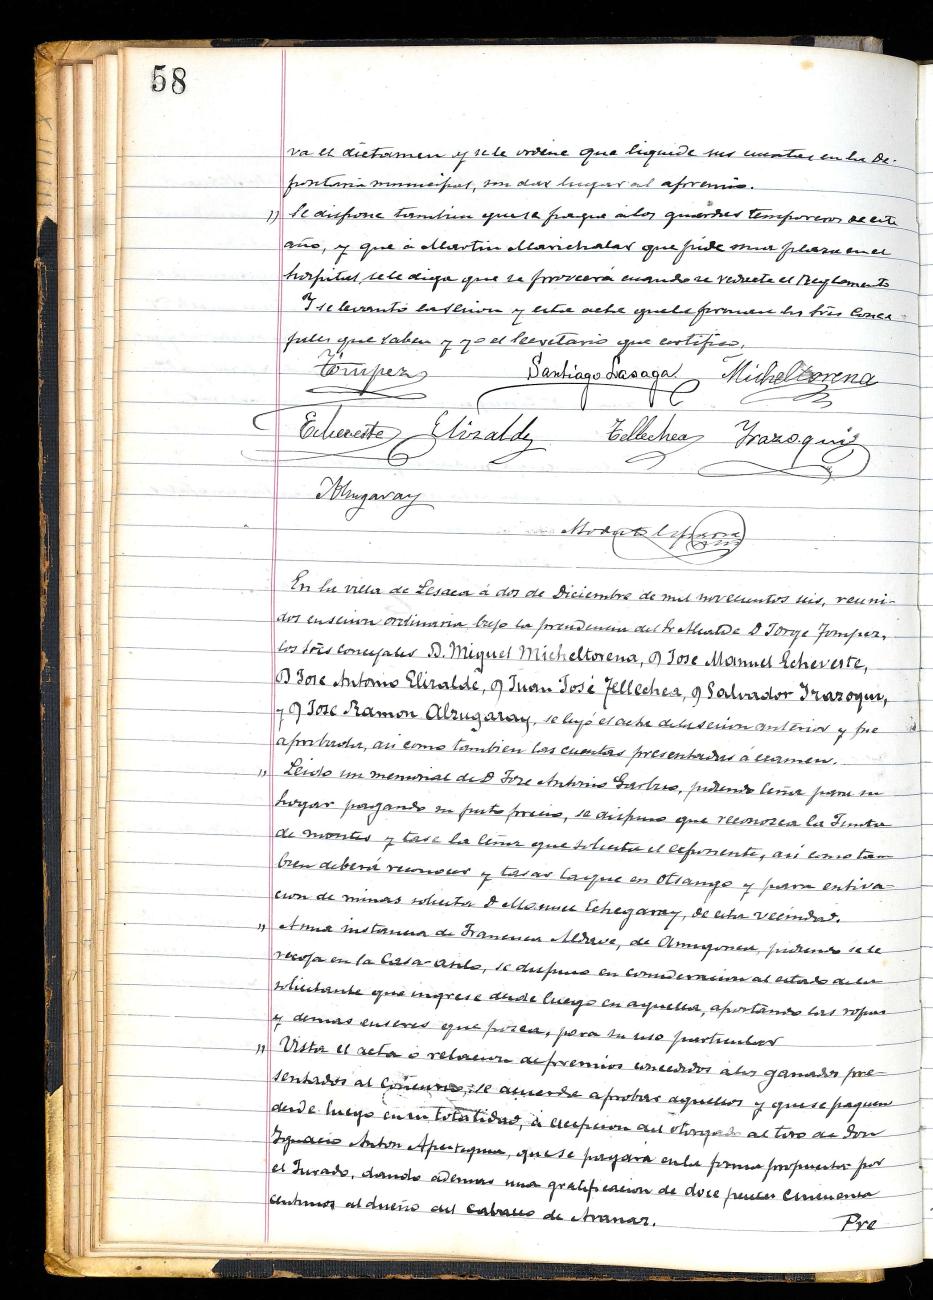 58
va el dictamen y se le ordene que liquide sus cuentas en la De-
positaria municipal, sin dar lugar al apremio.
" Se dispone tambien que se pague á los guardas temporeros de este
año, y que á Martin Marichalar que pide una plaza en el
hospital, se le diga que se proveerá cuando se redacte el Reglamento
Y se levantó la sesion y esta acta que la firman los Sres Conce-
jales que saben y yo el Secretario que certifico.
Tompez Santiago Lasaga Micheltorena
Echeveste Elizalde Tellechea Yrazoqui
Alzugaray
Modesto
En la villa de Lesaca á dos de Diciembre de mil novecientos seis, reuni-
dos en sesion ordinaria bajo la presidencia del Sr Alcalde D Jorge Tompez,
los Sres concejales D. Miguel Micheltorena, D Jose Manuel Echeveste,
D Jose Antonio Elizalde, D Juan José Tellechea, D Salvador Irazoqui,
y D Jose Ramon Alzugaray, se leyó el acta de la sesion anterior y fue
aprobada, asi como tambien las cuentas presentadas á examen.
" Leido un memorial de D Jose Antonio pidiendo leña para su
hogar pagando su justo precio, se dispuso que reconozca la Junta
de montes y tase la leña que solicita el exponente, asi como tam-
bien deberá reconocer y tasar la que en Otsango y para entiva-
cion de minas solicita D Manuel Echegaray, de esta vecindad.
" A una instancia de Francisca Aldave, de pidiendo se le
recoja en la Casa-asilo, se dispuso en consideracion al estado de la
solicitante que ingrese desde luego en aquella, aportando las ropas
y demas enseres que posea, para su uso particular
" Vista el acta ó relacion de premios concedidos a los ganados pre-
sentados al Concurso, se acuerda aprobar aquellos y que se paguen
desde luego en su totalidad, á excepcion del otorgado al toro de Don
Ygnacio Anton Apesteguia, que se pagará en la forma propuesta por
el Jurado, dando ademas una gratificacion de doce pesetas cincuenta
centimos al dueño del caballo de Aranaz.
Pre